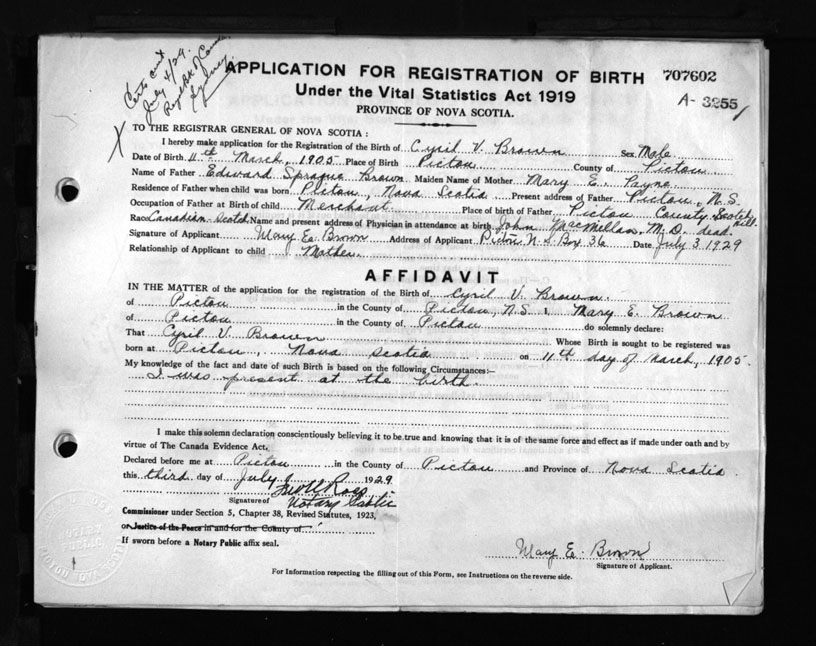 Certs sent
July 4/29.
Sydney.
APPLICATION FOR REGISTRATION OF BIRTH 707602
Under the Vital Statistics Act 1919 A-3255
PROVINCE OF NOVA SCOTIA.
X TO THE REGISTRAR GENERAL OF NOVA SCOTIA:
I hereby make application for the Registration of the Birth of Cyril V. Brown Sex Male
Date of Birth 11th March, 1905 Place of Birth Pictou County of Pictou
Name of Father Edward Sprague Brown Maiden Name of Mother Mary E. Payne
Residence of Father when child was born Pictou, Nova Scotia Present address of Father Pictou, N.S.
Occupation of Father at Birth of child Merchant Place of birth of Father Pictou County Scotch Hill
Race Canadian Scotch Name and present address of Physician in attendance at birth John MacMillan, M.D. dead.
Signature of Applicant Mary E. Brown Address of Applicant Pictou N.S. Box 36 Date July 3 1929
Relationship of Applicant to child Mother
AFFIDAVIT
IN THE MATTER of the application for the registration of the Birth of Cyril V. Brown.
of Pictou in the County of Pictou, N.S. I, Mary E. Brown
of Pictou in the County of Pictou do solemnly declare:
That Cyril V. Brown Whose Birth is sought to be registered was
born at Pictou, Nova Scotia on 11th day of March, 1905.
My knowledge of the fact and date of such Birth is based on the following Circumstances:—
I was present at the birth.
I make this solemn declaration conscientiously believing it to be true and knowing that it is of the same force and effect as if made under oath and by
virtue of The Canada Evidence Act.
Declared before me at Pictou in the County of Pictou and Province of Nova Scotia
this third day of July 1929
Ross
Signature of Notary Public
Commissioner under Section 5, Chapter 38, Revised Statutes, 1923,
or Justice of the Peace in and for the County of
If sworn before a Notary Public affix seal.
Mary E. Brown
Signature of Applicant.
For Information respecting the filling out of this Form, see Instructions on the reverse side.